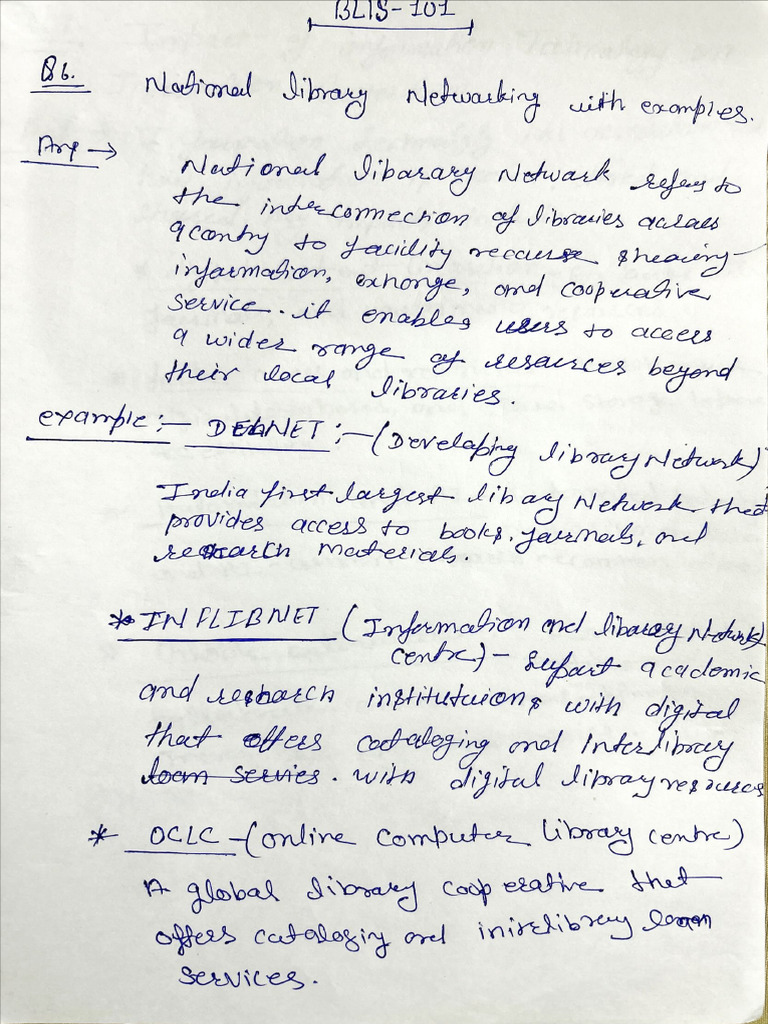 BLIS-101
Q6. National library Networking with examples.
Ans → National libarary Network refers to
the interconnection of libraries across
a contry to facility recourse shearing
information, exhonge, and cooperative
service. it enables users to access
a wider range of resources beyond
their local libraries.
example:- DELNET:- (Developing library Network)
India first largest libary Network that
provides access to books, journals, and
research materials.
* INFLIBNET (Information and library Network
centre) - Supart academic
and research institutuions with digital
that offers cataloging and Interlibrary
loan servies. with digital library resources
* OCLC - (online Computer Library centre)
A global library cooperative that
offers cataloging and interlibrary loan
services.